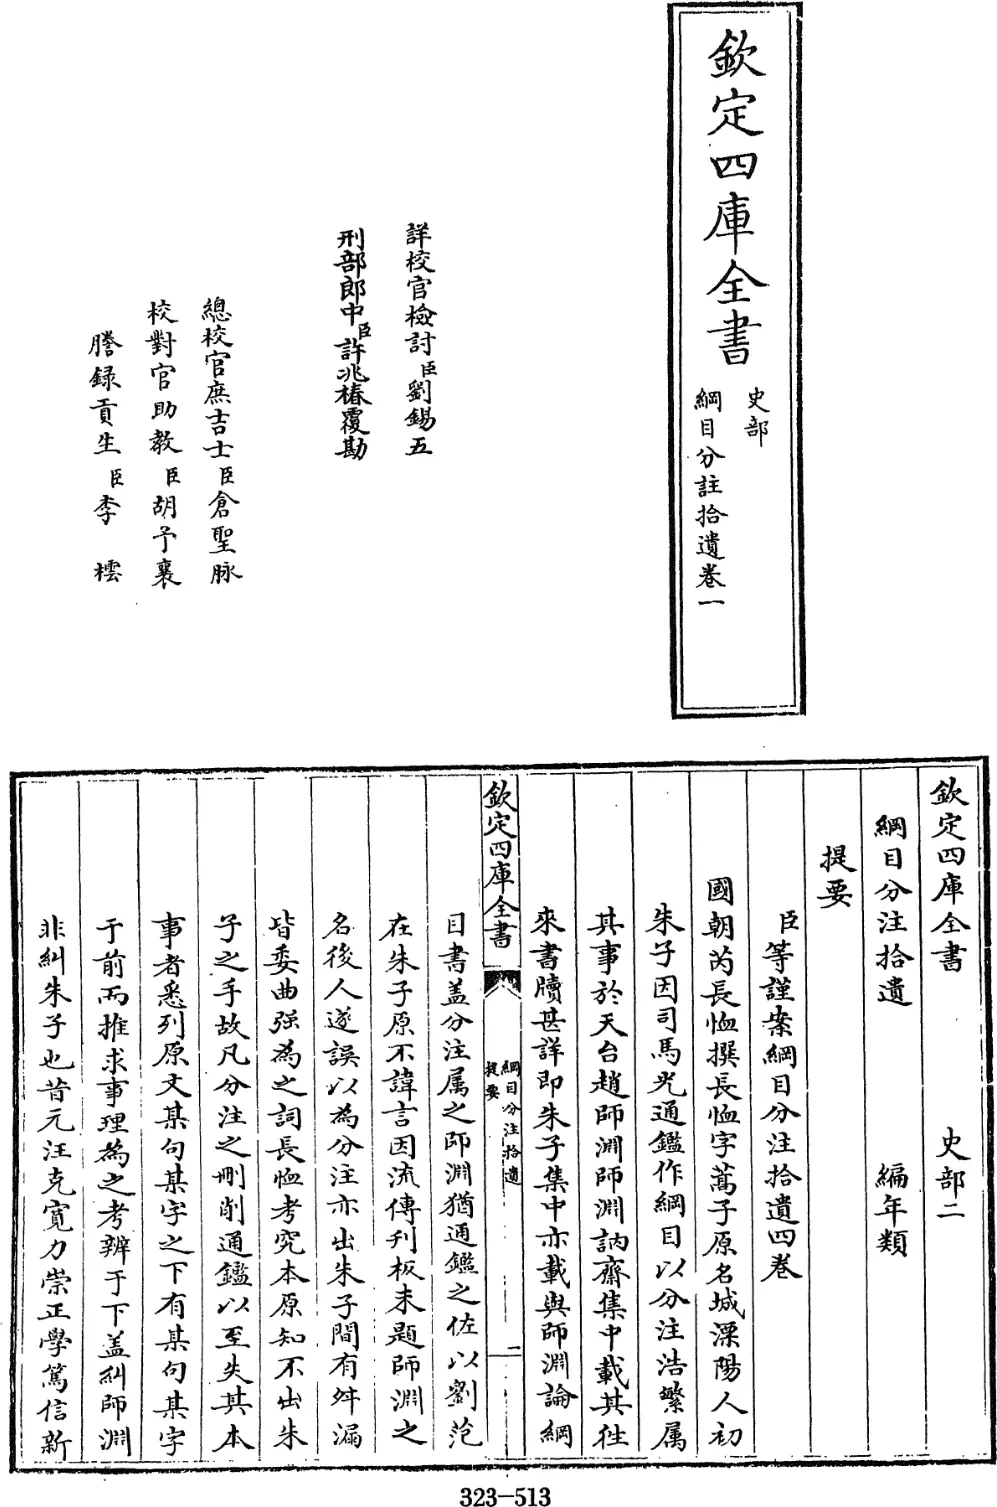 欽定四庫全書
史部
綱目分註拾遺卷一
詳校官檢討臣劉錫五
刑部郎中臣許兆椿覆勘
總校官庶吉士臣倉聖脉
校對官助教臣胡予襄
謄錄貢生臣李橒
欽定四庫全書 史部二
綱目分注拾遺 編年類
提要
臣等謹案綱目分注拾遺四卷
國朝芮長恤撰長恤字蒿子原名城溧陽人初
朱子因司馬光通鑑作綱目以分注浩繁属
其事於天台趙師淵師淵訥齋集中載其往
來書牘甚詳即朱子集中亦載與師淵論綱
欽定四庫全書
綱目分注拾遺
提要
二
目書盖分注属之師淵猶通鑑之佐以劉范
在朱子原不諱言因流傳刋板未題師淵之
名後人遂誤以為分注亦出朱子間有舛漏
皆委曲强為之詞長恤考究本原知不出朱
子之手故凡分注之刪削通鑑以至失其本
事者悉列原文某句某字之下有某句某字
于前而推求事理為之考辨于下盖糾師淵
非糾朱子也昔元汪克寛力崇正學篤信新
323-513